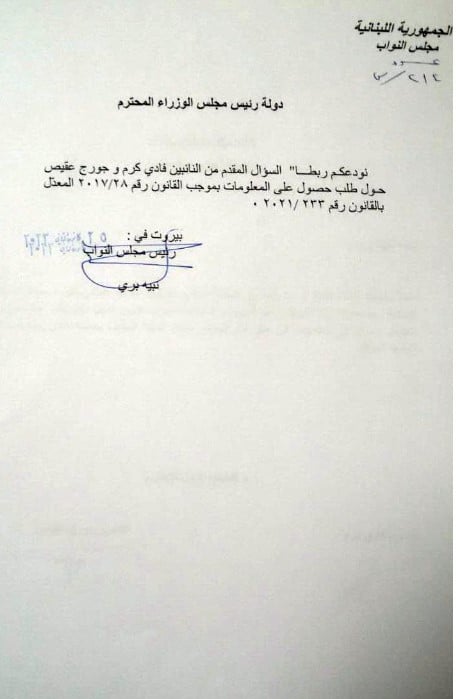 الجمهورية اللبنانية
مجلس النواب
عدد
٢١٤/س
دولة رئيس مجلس الوزراء المحترم
نودعكم ربطـــا" السؤال المقدم من النائبين فادي كرم و جورج عقيص
حول طلب حصول على المعلومات بموجب القانون رقم ٢٠١٧/٢٨ المعدّل
بالقانون رقم ٢٣٣ /٢٠٢١ ٠
بيروت في :
رئيس مجلس النواب
نبيه بري